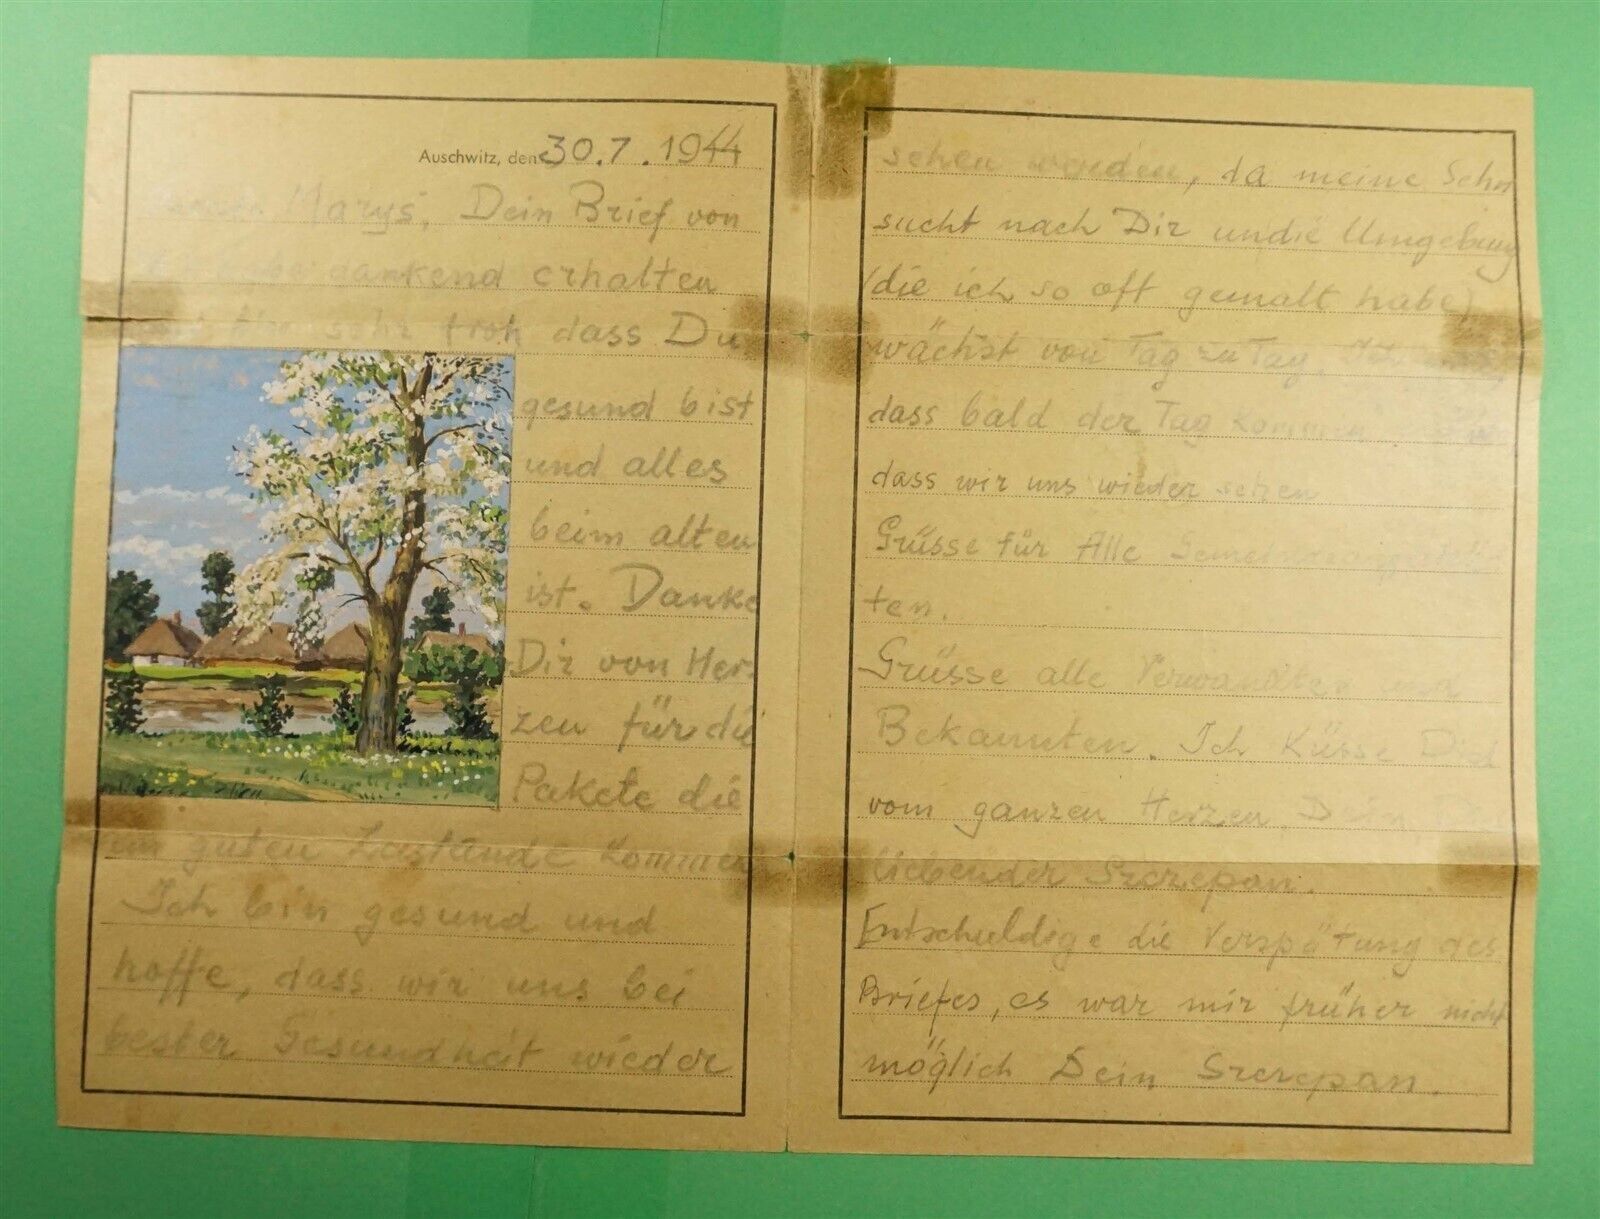 Auschwitz, den 30.7.1944
Marys, Dein Brief von
dankend erhalten
sehr froh dass Du
gesund bist
und alles
beim alten
ist. Danke
Dir von Her
zen für die
Pakete die
in guten Zustande kommen
Ich bin gesund und
hoffe, dass wir uns bei
bester Gesundheit wieder
sehen werden, da meine Sehn
sucht nach Dir und die Umgebung
(die ich so oft gemalt habe)
wächst von Tag zu Tag.
dass bald der Tag kommen
dass wir uns wieder sehen
Grüsse für Alle
ten.
Grüsse alle Verwandten und
Bekannten. Ich Küsse Dich
vom ganzen Herzen Dein
liebender Szczepan.
Entschuldige die Verspätung des
Briefes, es war mir früher nicht
möglich Dein Szczepan.